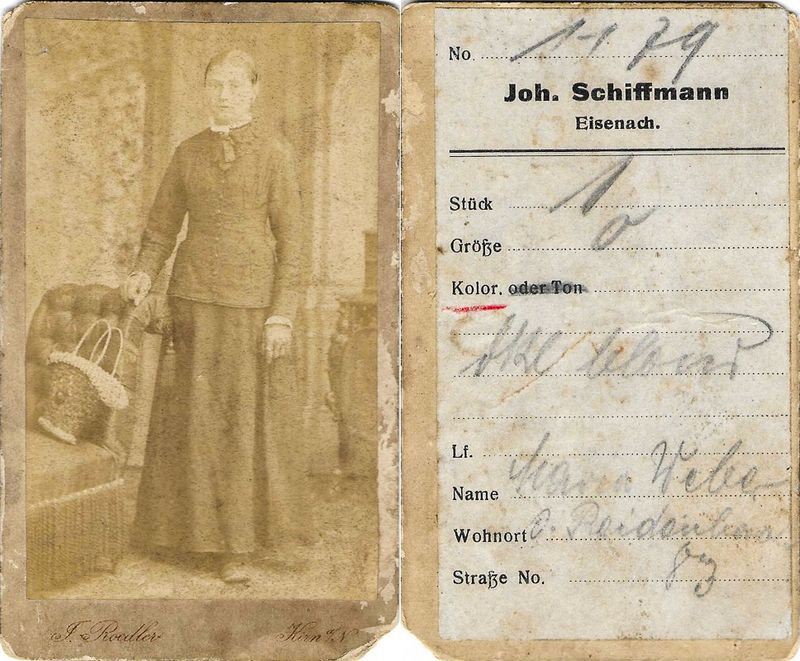 F. Roedler Kirn a/N
No. 1179
Joh. Schiffmann
Eisenach.
Stück 1
Größe
Kolor. oder Ton
dkl blond
Lf.
Name Maria Weber
Wohnort O.
Straße No. 83